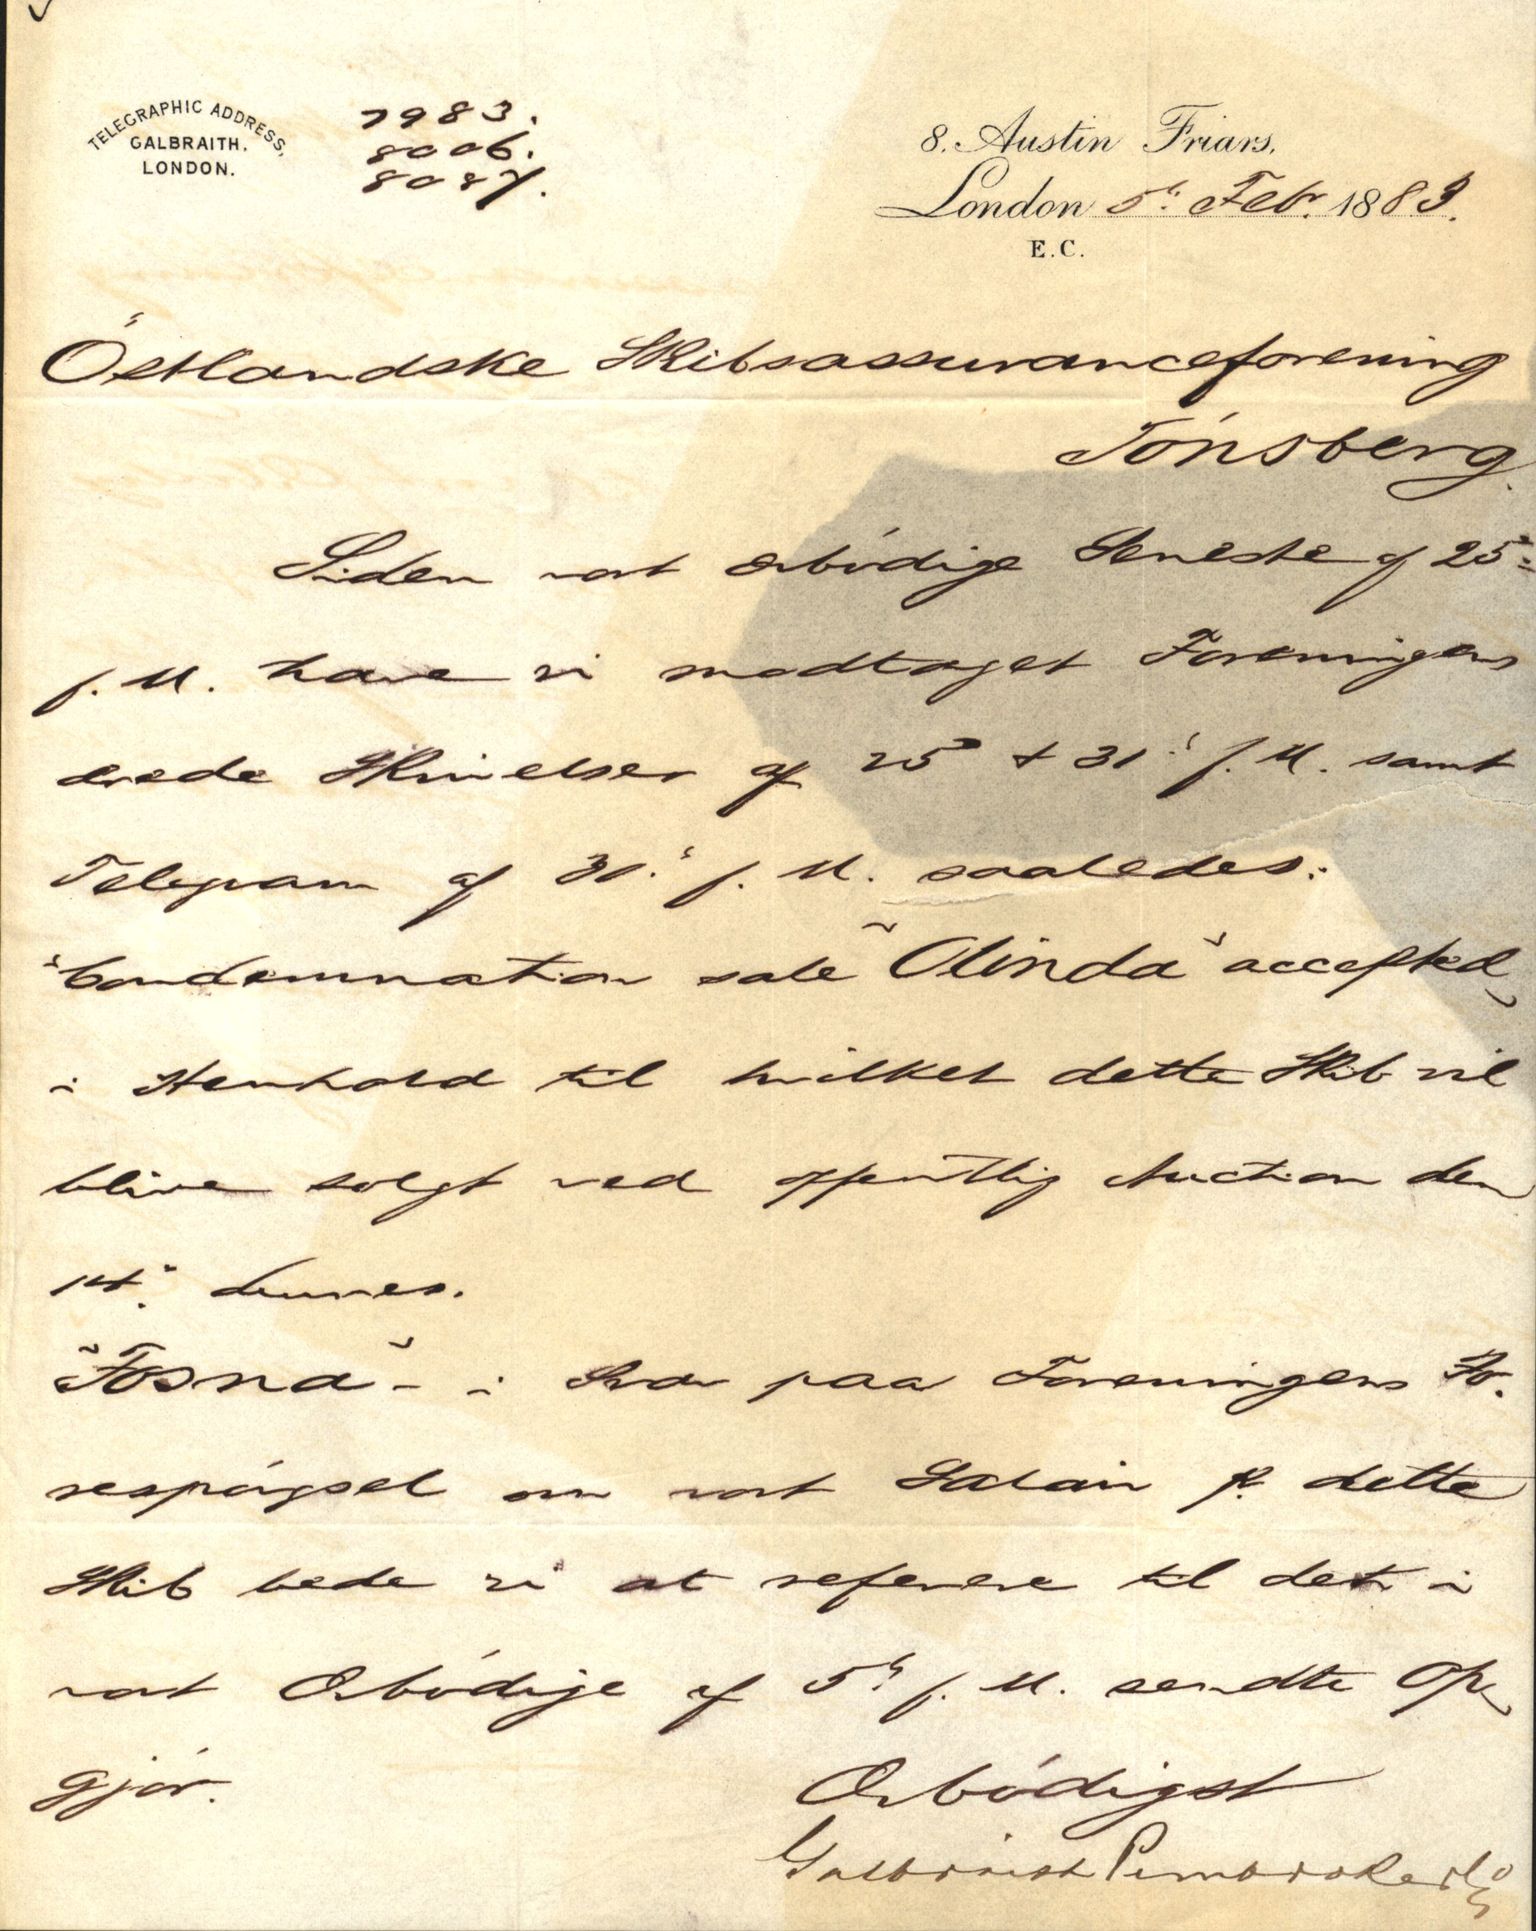 TELEGRAPHIC ADDRESS,
GALBRAITH.
LONDON.
7983.
8006.
8087.
8. Austin Friars,
London 5th Febr. 1883.
E.C.
Östlandske Skibsassuranceforening
Tönsberg.
Siden vort ærbödige Seneste af 25d
f. M. have vi modtaget Foreningens
ærede Skrivelser af 25d & 31s f. M. samt
Telegram af 31s f. M. saaledes:
"Condemnation sale "Olinda" accepted",
i Henhold til hvilket dette Skib vil
blive solgt ved offentlig Auction den
14d dennes.
"Fosna" - i Svar paa Foreningens Fo-
respörgsel om vort Salair p. dette
Skib bede vi at referere til det i
vort Ærbödige af 5th f. M. sendte Op-
gjör.
Ærbödigst
Galbraith Pembroke & Co